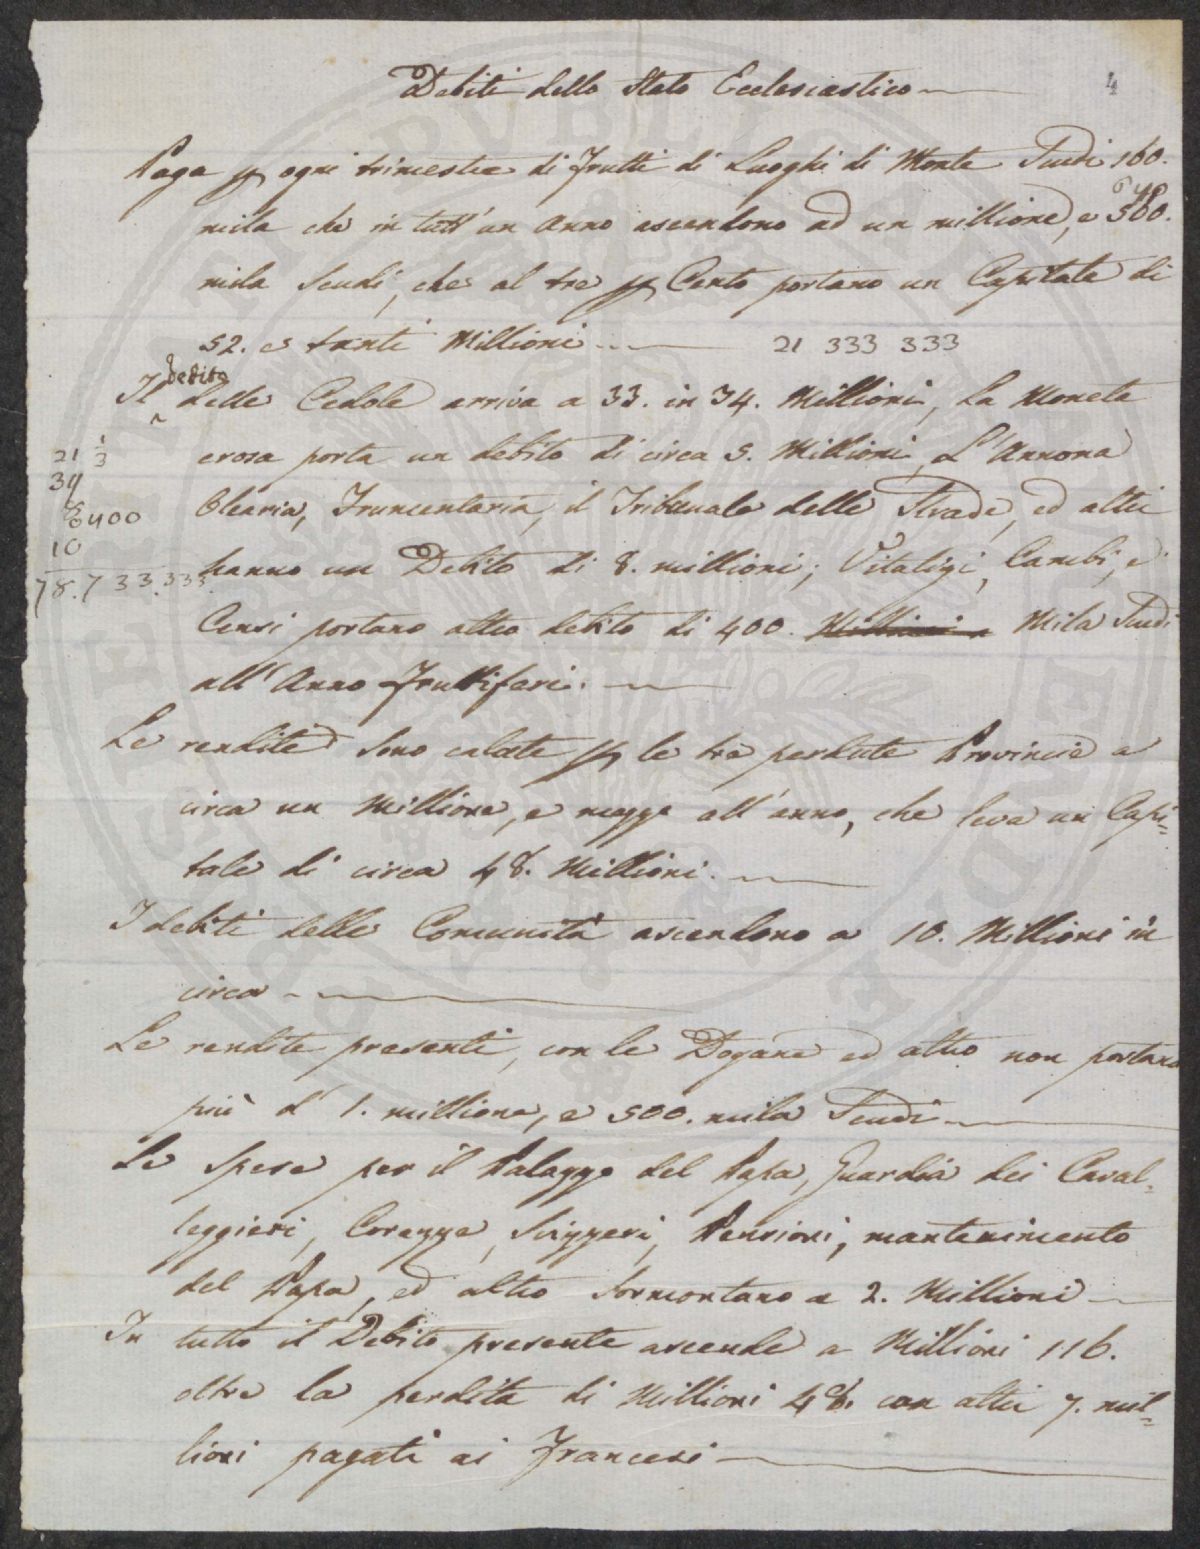 Debiti dello Stato Ecclesiastico
4
Paga p ogni trimestre di frutti di Luoghi di Monte Scudi 160.
mila che in tutt'un Anno ascendono ad un millione, e 560.
640
mila Scudi, che al tre p Cento portano un Capitale di
52. e tanti Millioni 21 333 333
Il debito delle Cedole arriva a 33. in 34. Millioni, La Moneta
erosa porta un debito di circa 5. Millioni, L'Annona
Olearia, Frumentaria, il Tribunale delle Strade, ed altri
hanno un Debito di 8. millioni; Vitalizi, Cambi, e
Censi portano altro debito di 400. Millioni Mila Scudi
all'Anno Fruttiferi.
21 1/3
34
400
10
78.733.333
Le rendite sono calate p le tre perdute Provincie a
circa un Millione, e mezzo all'anno, che leva un Capi=
tale di circa 48. Millioni.
I debiti delle Comunità ascendono a 10. Millioni in
circa
Le rendite presenti, con le Dogane ed altro non portano
più d'1. millione, e 500. mila Scudi
Le Spese per il Palazzo del Papa, Guardia dei Caval=
leggieri, Corazze, Svizzeri, Pensioni, mantenimento
del Papa, ed altro sormontano a 2. Millioni
In tutto il Debito presente ascende a Millioni 116.
oltre la perdita di Millioni 48. con altri 7. mil=
lioni pagati ai Francesi